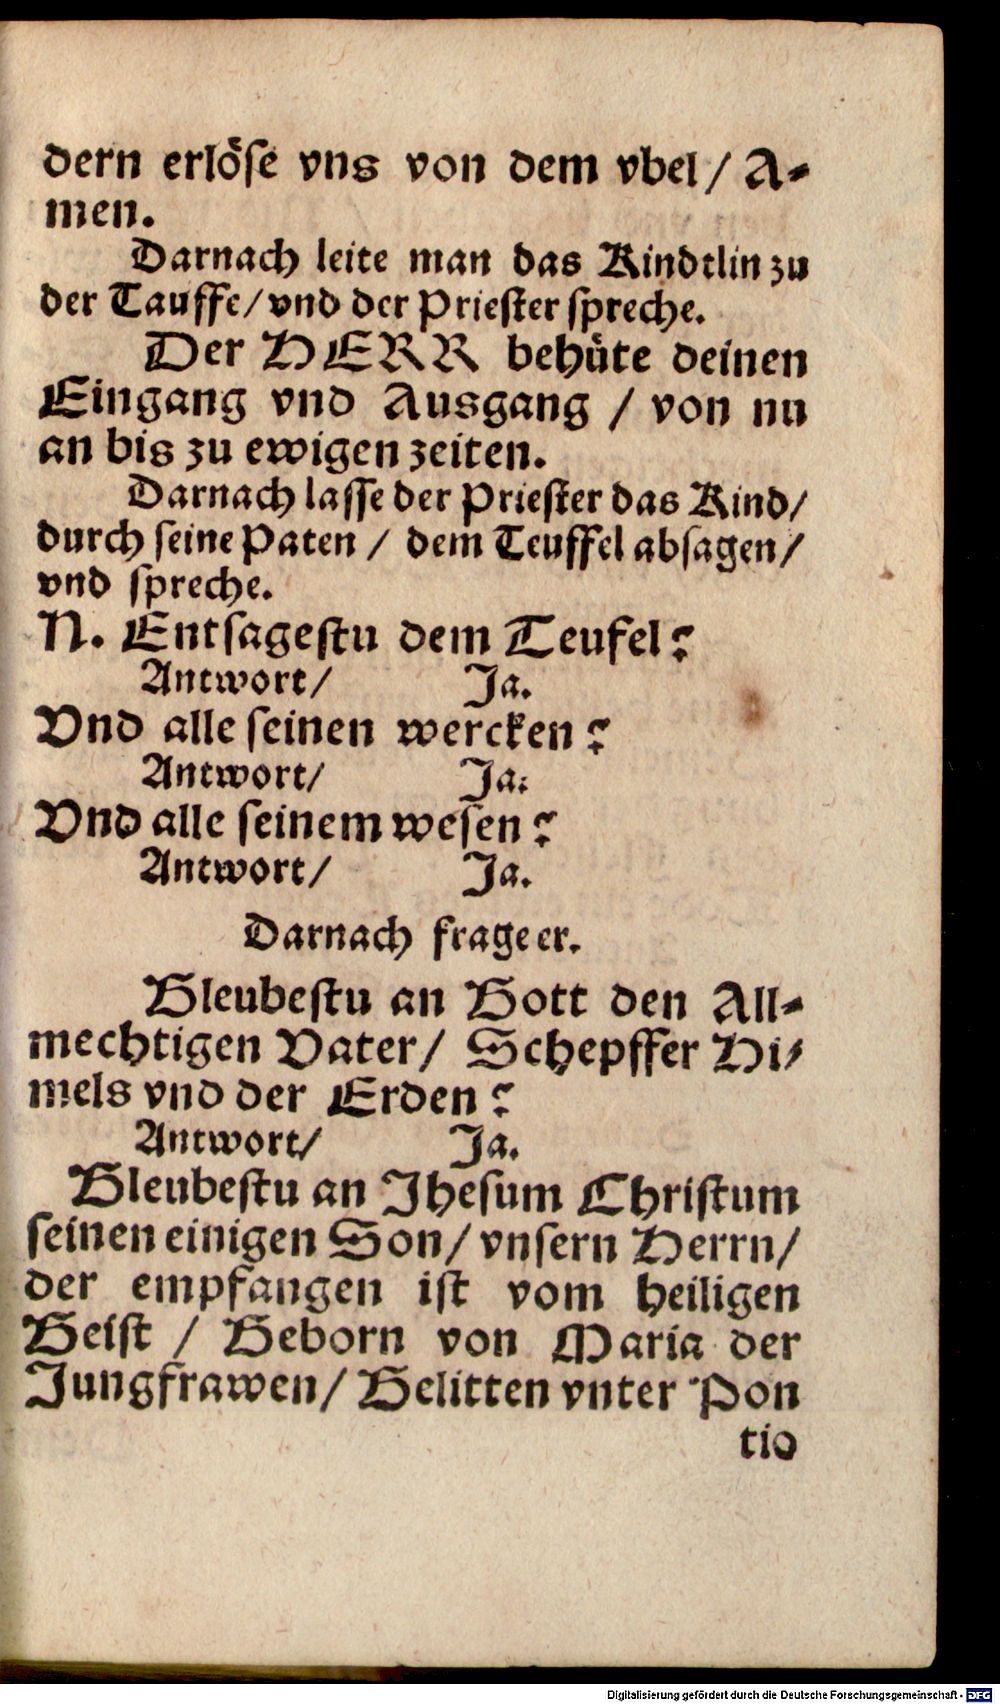 dern erlöse vns von dem vbel / A-
men.
Darnach leite man das Kindtlin zu
der Tauffe / vnd der Priester spreche.
Der HERR behüte deinen
Eingang vnd Ausgang / von nu
an bis zu ewigen zeiten.
Darnach lasse der Priester das Kind /
durch seine Paten / dem Teuffel absagen /
vnd spreche.
N. Entsagestu dem Teufel?
Antwort / Ja.
Vnd alle seinen wercken?
Antwort / Ja:
Vnd alle seinem wesen?
Antwort / Ja.
Darnach frage er.
Gleubestu an Gott den All-
mechtigen Vater / Schepffer Hi-
mels vnd der Erden?
Antwort / Ja.
Gleubestu an Jhesum Christum
seinen einigen Son / vnsern Herrn /
der empfangen ist vom heiligen
Geist / Geborn von Maria der
Jungfrawen / Gelitten vnter Pon
tio
Digitalisierung gefördert durch die Deutsche Forschungsgemeinschaft - DFG